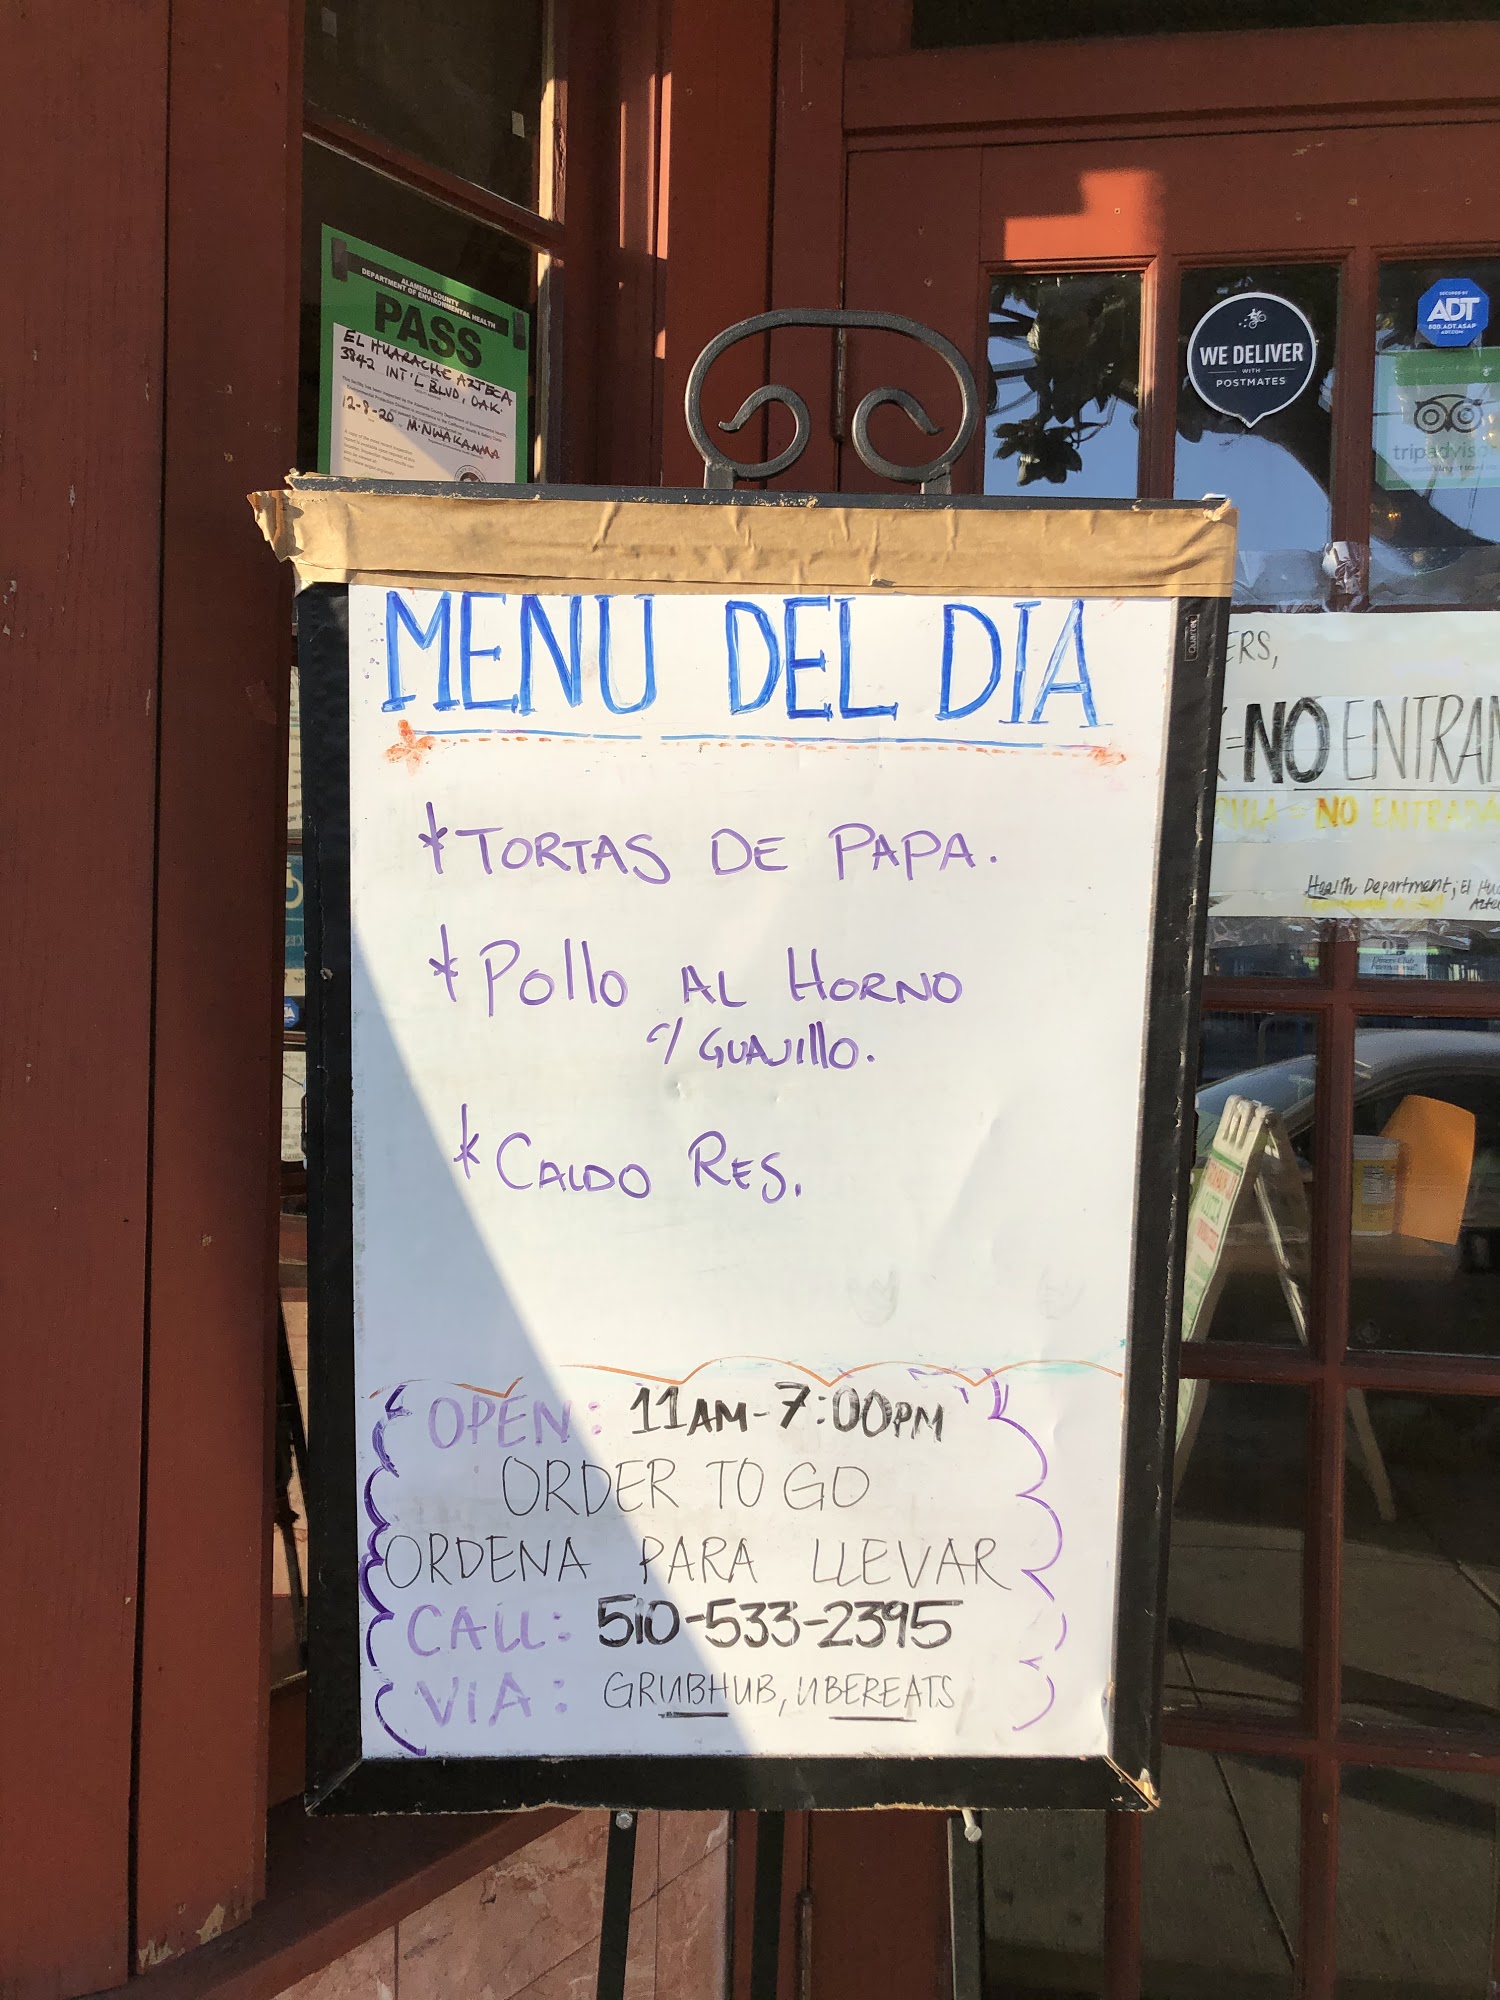 ALAMEDA COUNTY
DEPARTMENT OF ENVIRONMENTAL HEALTH
PASS
EL HUARACHE AZTECA
3842 INT'L BLVD, OAK.
12-8-20 M. NWAKANMA
WE DELIVER
WITH
POSTMATES
SECURED BY
ADT
800.ADT.ASAP
ADT.COM
tripadvisor
MENU DEL DIA
Quartet
*TORTAS DE PAPA.
*Pollo AL HORNO
c/ GUAJIllO.
*CALDO RES.
OPEN: 11AM-7:00PM
ORDER TO GO
ORDENA PARA LLEVAR
CALL: 510-533-2395
VIA: GRUBHUB, UBEREATS
ERS,
=NO ENTRAN
= NO ENTRADA
Health Department; El Hua
Azte
Diners Club
International